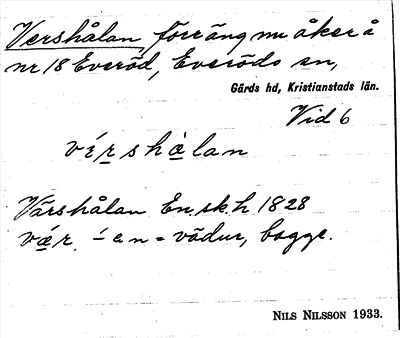 Vershålan, förr äng nu åker å
nr 18 Everöd, Everöds sn,
Gärds hd, Kristianstads län.
Vid 6
vé̱ṟshå̱lan
Vårshålan En.sk.h 1828
væ̱r. -́en = vädur, bagge.
NILS NILSSON 1933.